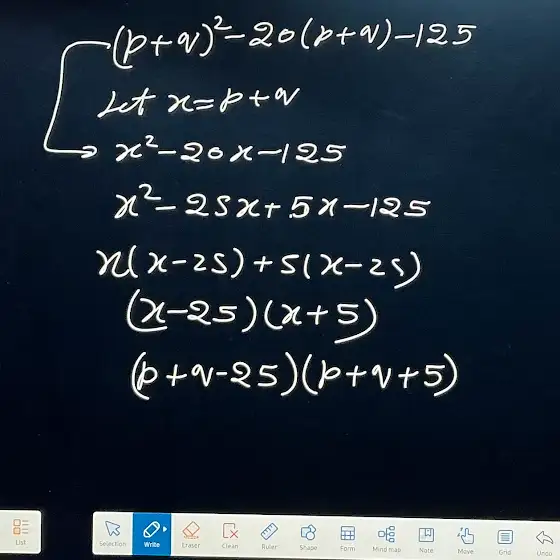 (p+q)²-20(p+q)-125
Let x=p+q
x²-20x-125
x²-25x+5x-125
x(x-25)+5(x-25)
(x-25)(x+5)
(p+q-25)(p+q+5)
List Selection Write Eraser Clean Ruler Shape Form Mind map Note Move Grid Undo